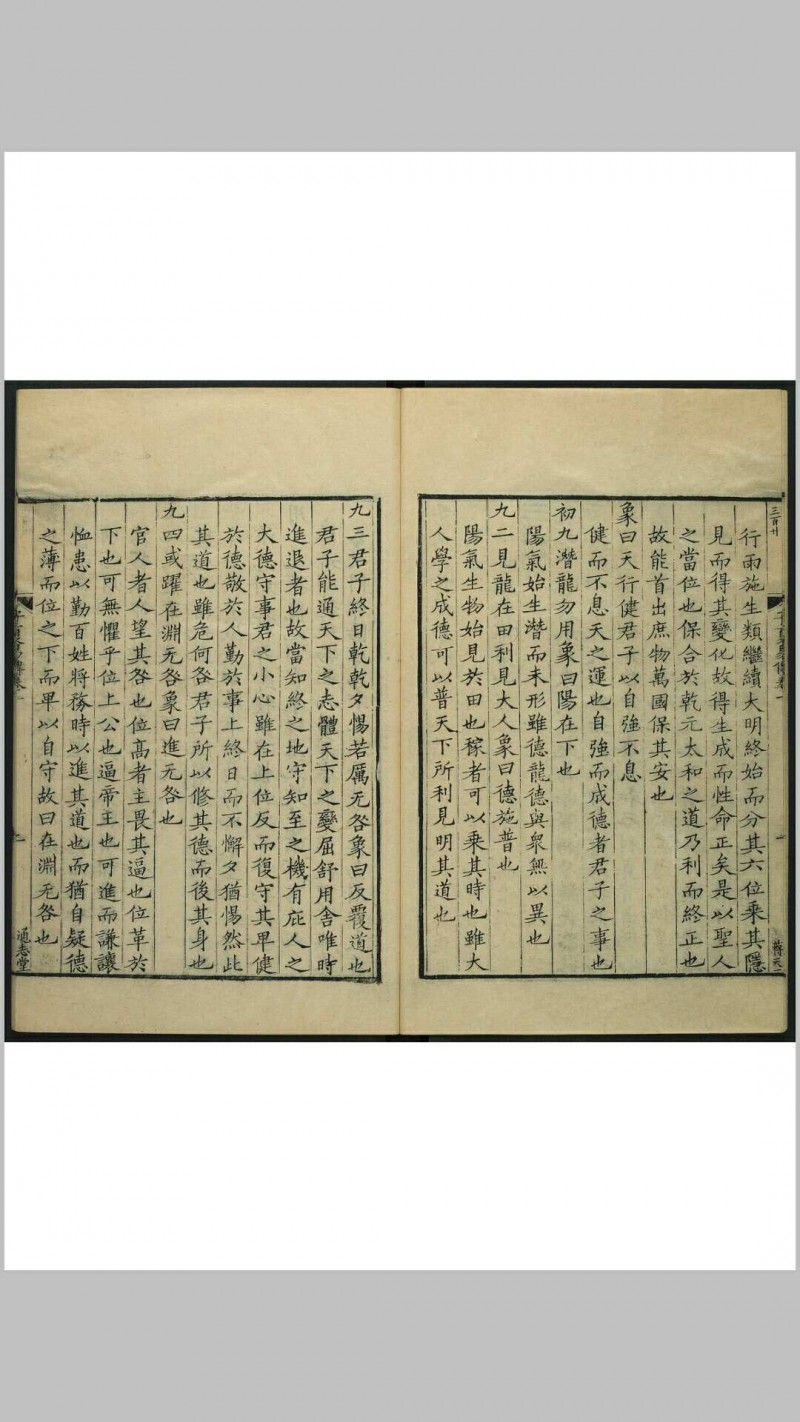 三百廿
行雨施生類繼續大明終始而分其六位乘其隱
見而得其變化故得生成而性命正矣是以聖人
之當位也保合於乾元太和之道乃利而終正也
故能首出庶物萬國保其安也
象曰天行健君子以自強不息
健而不息天之運也自強而成德者君子之事也
初九潛龍勿用象曰陽在下也
陽氣始生潛而未形雖德龍德與衆無以異也
九二見龍在田利見大人象曰德施普也
陽氣生物始見於田也稼者可以乘其時也雖大
人學之成德可以普天下所利見明其道也
九三君子終日乾乾夕惕若厲无咎象曰反覆道也
君子能通天下之志體天下之變屈舒用舍唯時
進退者也故當知終之地守知至之機有庇人之
大德守事君之小心雖在上位反而復守其卑健
於德敬於人勤於事上終日而不懈夕猶惕然此
其道也雖危何咎君子所以修其德而後其身也
九四或躍在淵无咎象曰進无咎也
官人者人望其咎也位高者主畏其逼也位革於
下也可無懼乎位上公也逼帝王也可進而謙讓
恤患以勤百姓將務時以進其道也而猶自疑德
之薄而位之下而卑以自守故曰在淵无咎也
通志堂